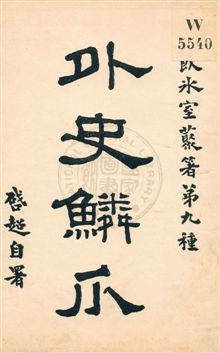 W
5540
飲冰室叢著第九種
外史鱗爪
啓超自署